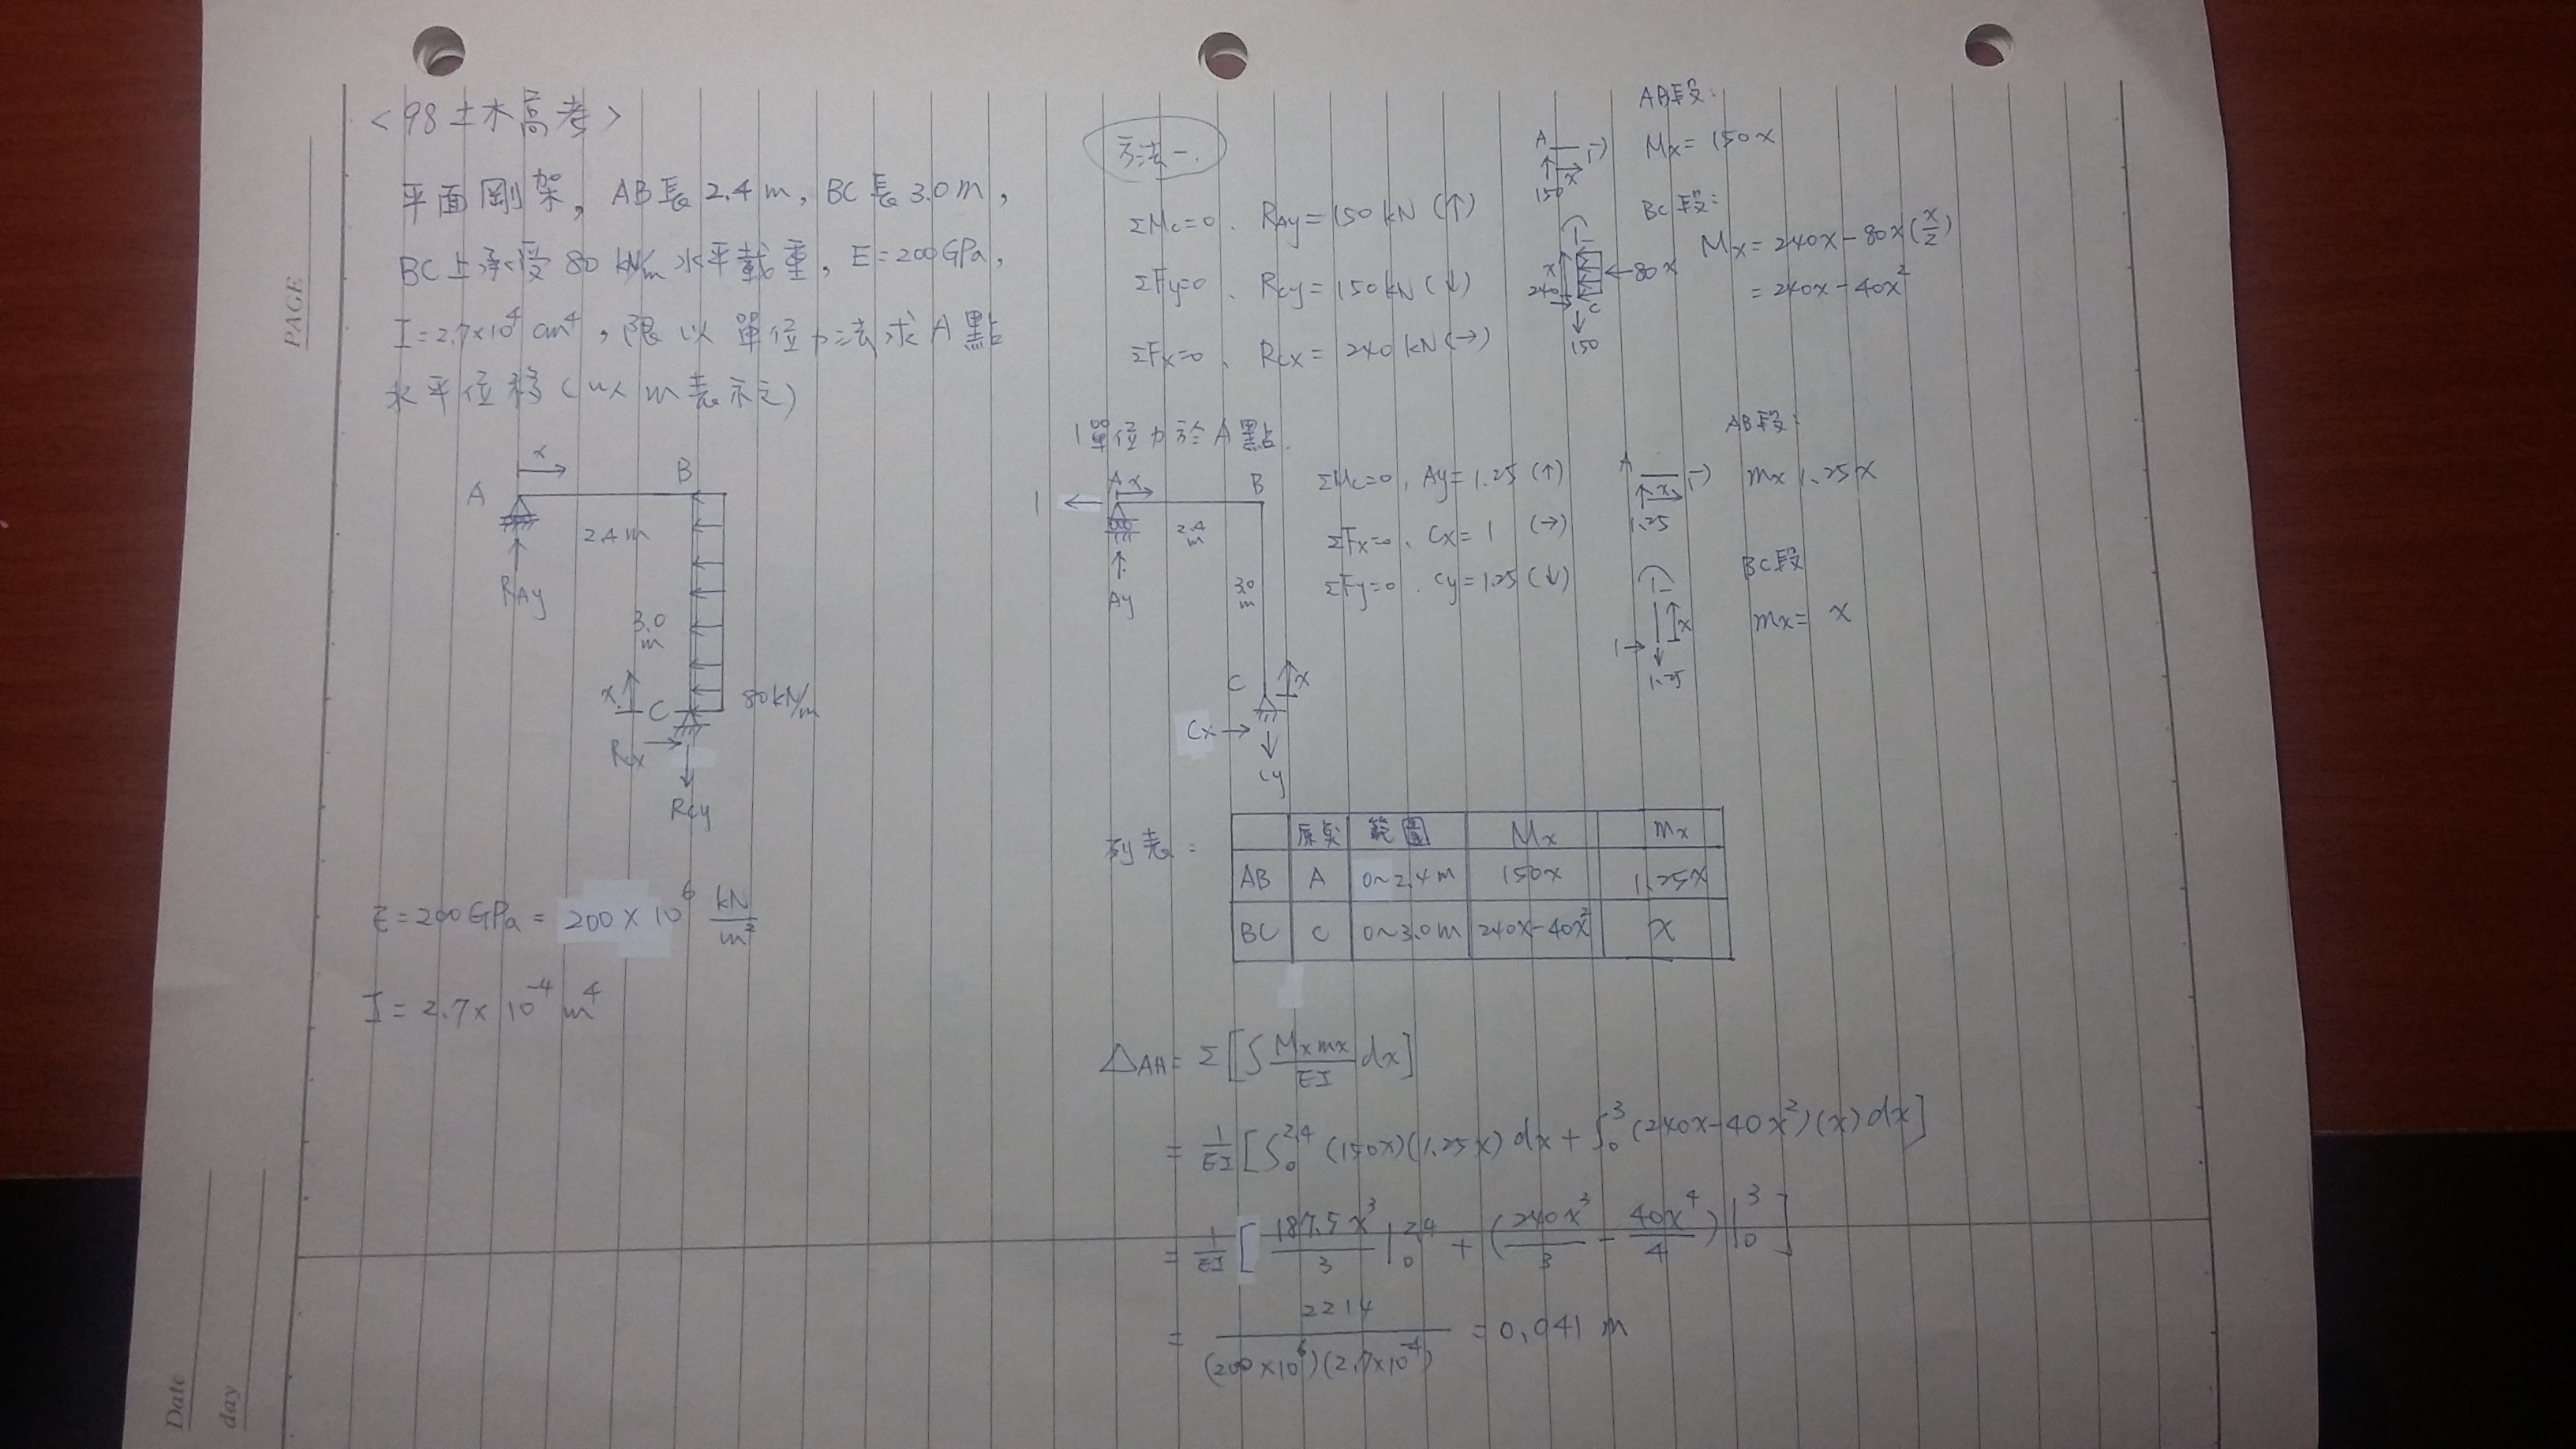 <98土木高考>
平面剛架, AB長2.4m, BC長3.0m,
BC上承受80 kN/m 水平載重, E=200GPa,
I=2.7×10⁴ cm⁴, 限以單位力法求A點
水平位移(以m表示之)
x
A
B
2.4m
RAy
3.0
m
x
C
80kN/m
Rcx
Rcy
E=200GPa = 200×10⁶ kN/m²
I= 2.7×10⁻⁴ m⁴
方法一.
ΣMc=0、 RAy=150kN(↑)
ΣFy=0、 Rcy=150kN(↓)
ΣFx=0、 Rcx= 240kN(→)
AB段:
A
x
150
Mx= 150x
BC段:
Mx=240x-80x(x/2)
=240x-40x²
x
←80x
240
C
150
1單位力於A點.
1
A x
B
2.4
m
Ay
3.0
m
C
x
Cx→
Cy
ΣMc=0, Ay=1.25(↑)
ΣFx=0、 Cx=1 (→)
ΣFy=0、 Cy=1.25(↓)
AB段:
A
x
1.25
mx 1.25x
BC段
mx= x
x
1→
1.25
列表:
原點 範圍 Mx mx
AB A 0~2.4m 150x 1.25x
BC C 0~3.0m 240x-40x² x
△AH= Σ[∫ Mxmx/EI dx]
= 1/EI [∫₀^2.4 (150x)(1.25x)dx + ∫₀³(240x-40x²)(x)dx]
= 1/EI [ 187.5x³/3 |₀^2.4 + (240x³/3 - 40x⁴/4)|₀³ ]
= 2214/(200×10⁶)(2.7×10⁻⁴) = 0.041 m
PAGE
Date
day